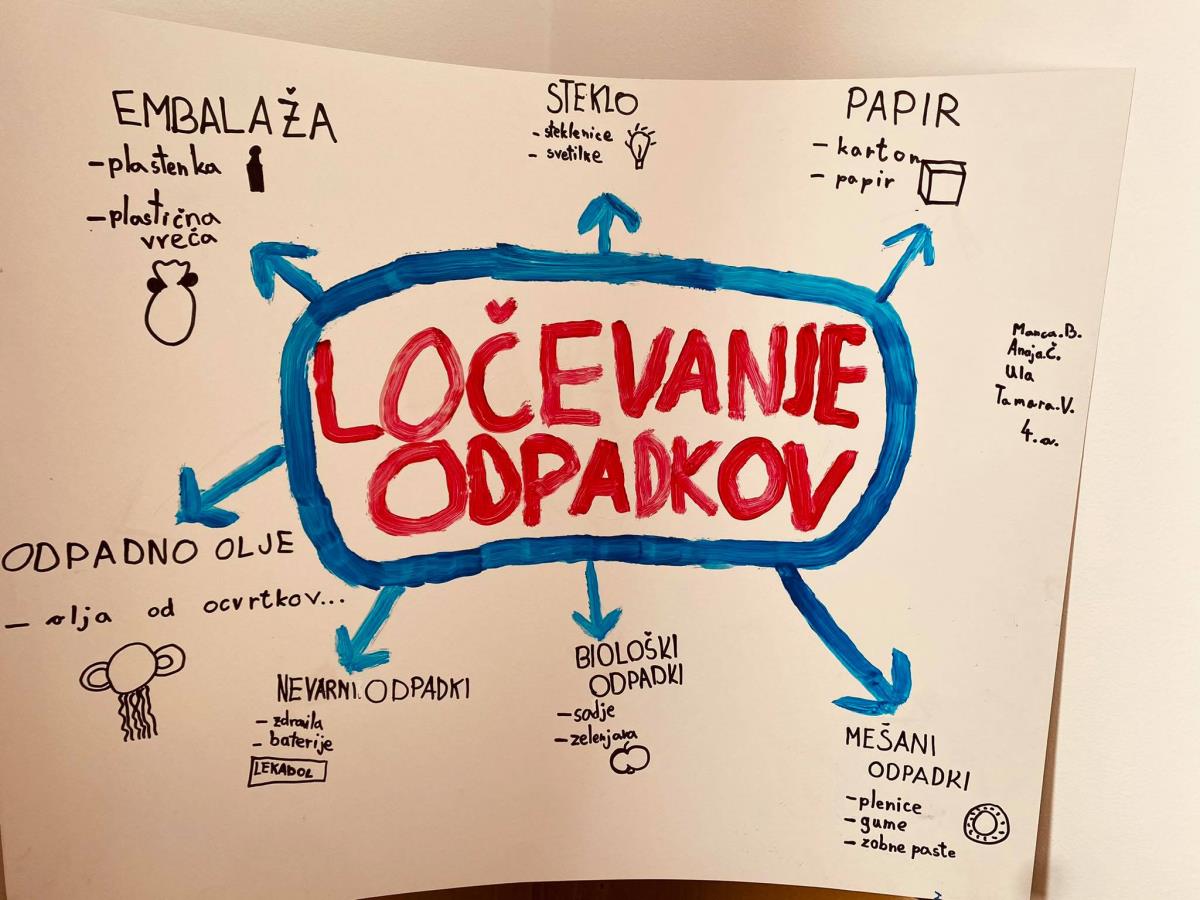 EMBALAŽA
- plastenka
- plastična
vreča
STEKLO
- steklenice
- svetilke
PAPIR
- karton
- papir
LOČEVANJE
ODPADKOV
Manca.B.
Anaja.Č.
Ula
Tamara.V.
4.a.
ODPADNO OLJE
- olja od ocvrtkov...
NEVARNI ODPADKI
- zdravila
- baterije
LEKADOL
BIOLOŠKI
ODPADKI
- sadje
- zelenjava
MEŠANI
ODPADKI
- plenice
- gume
- zobne paste